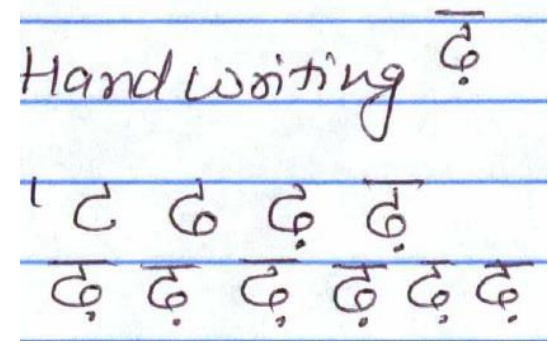 Handwriting ढ़
ढ़ ढ़ ढ़ ढ़ ढ़ ढ़